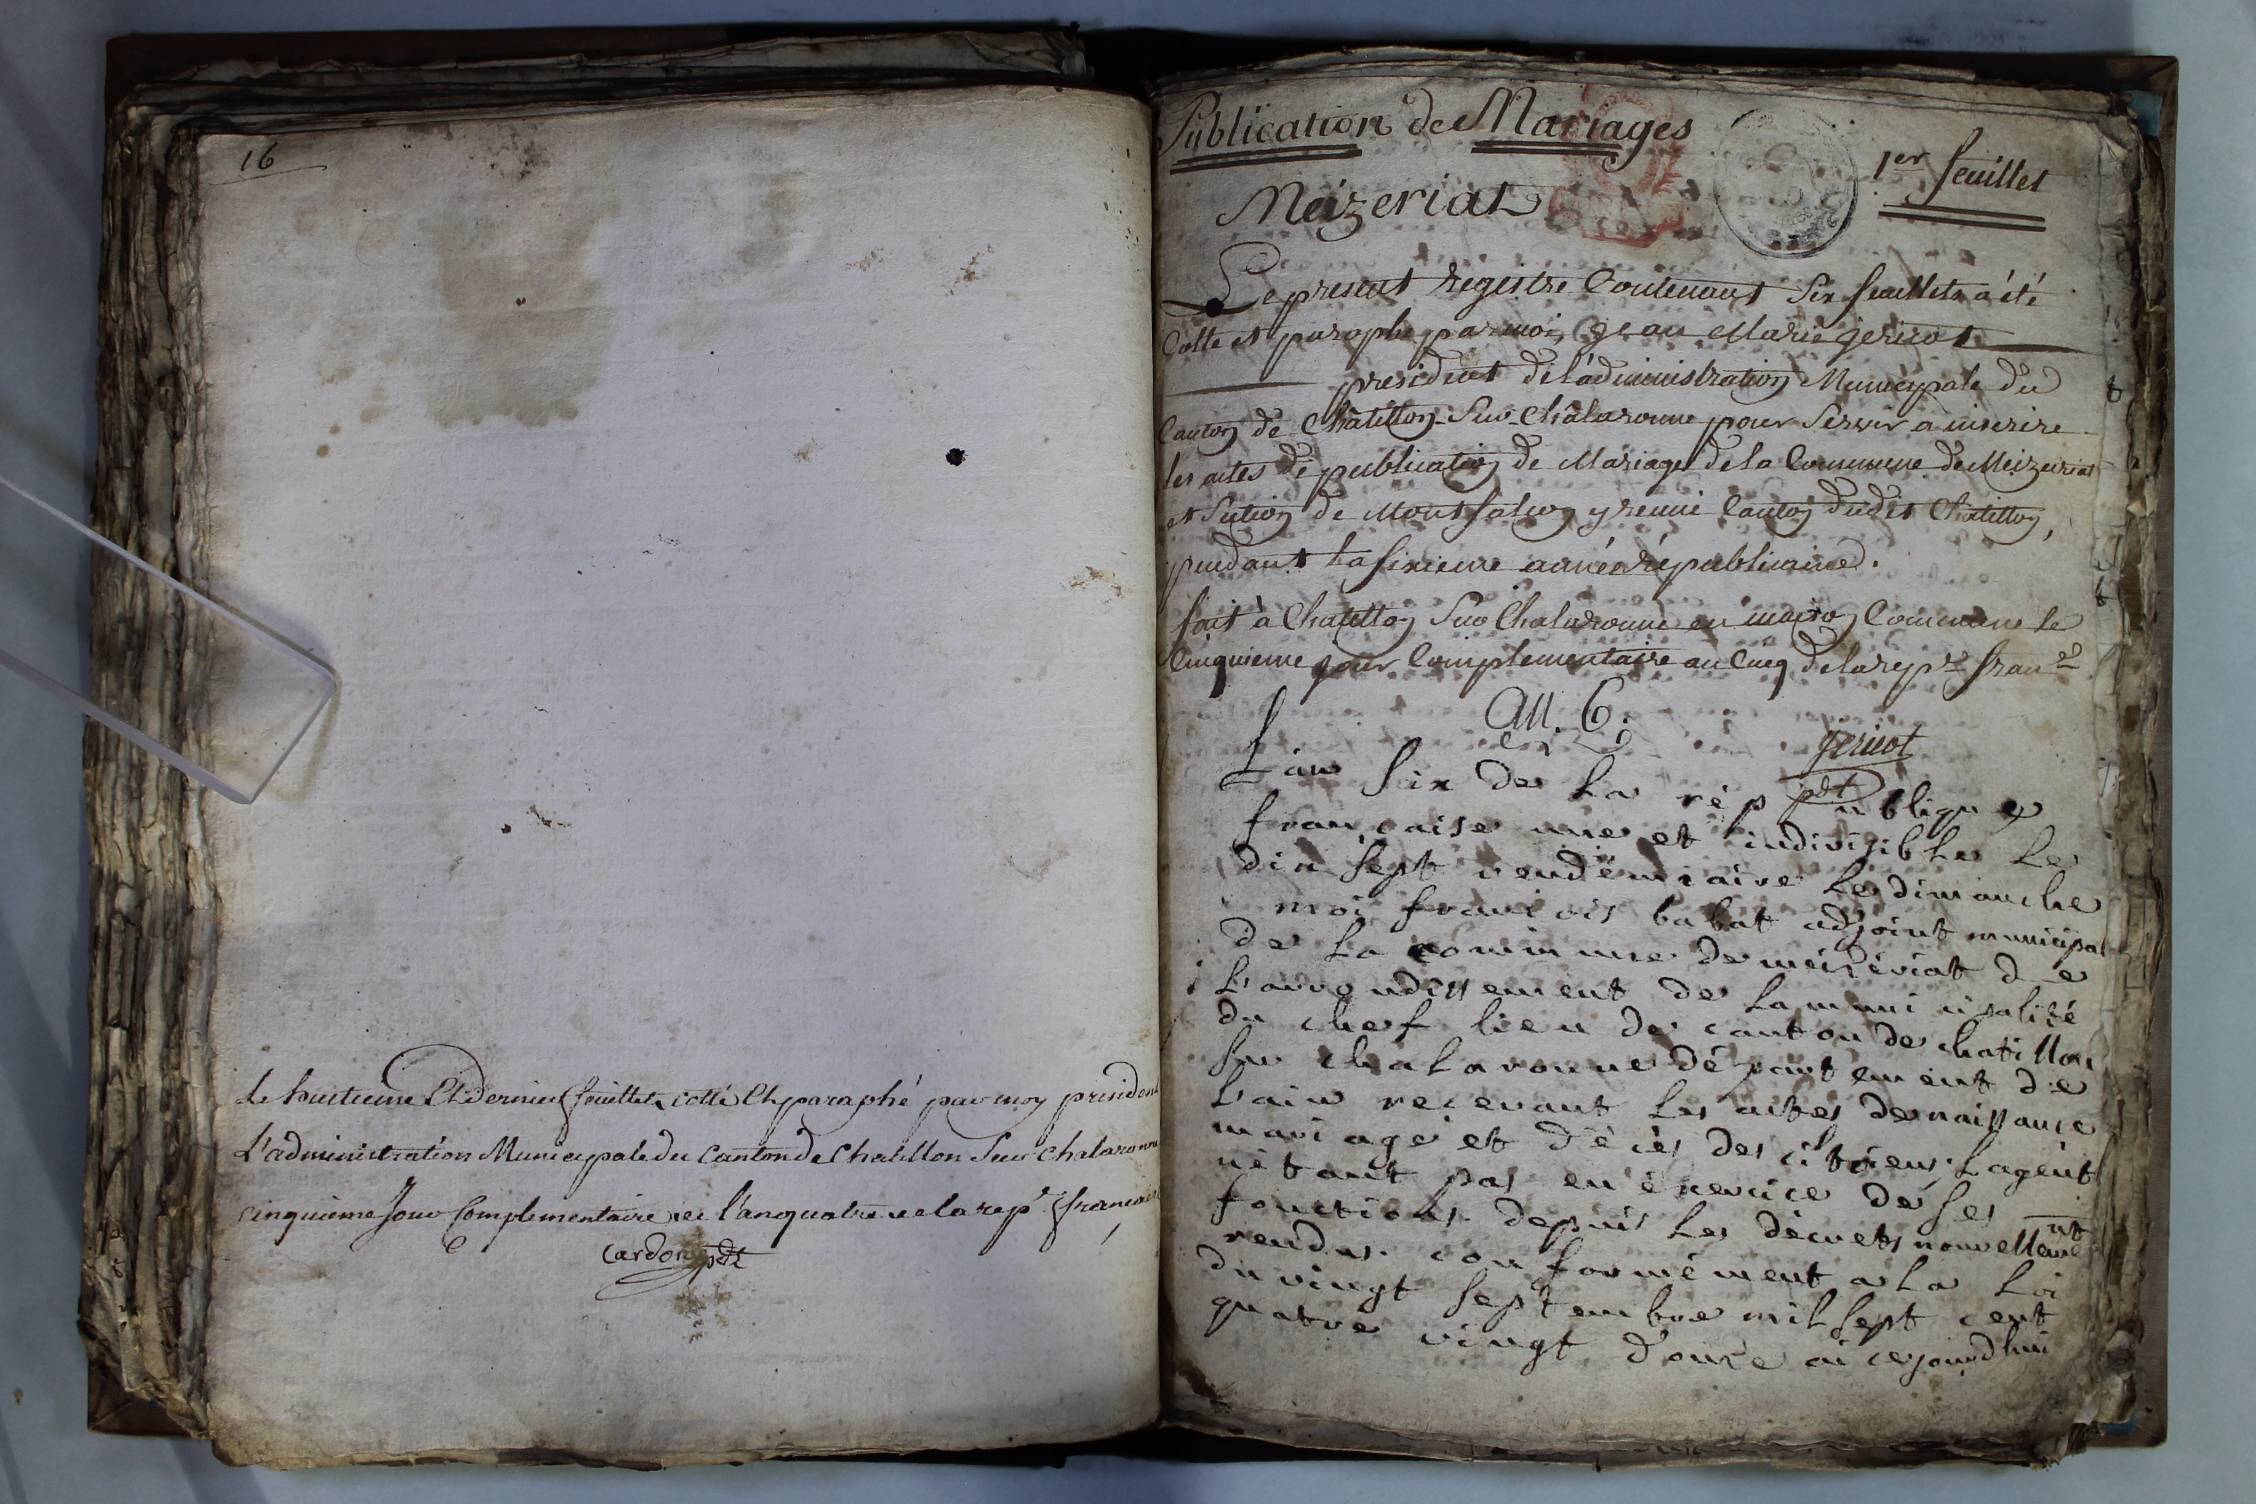 16
Le huitieme Et Dernier feuillet, cotté Et paraphé par moy president
L'administration Municipale du Canton de Chatillon Sur Chalaronne
cinquieme Jour Complementaire de l'an quatre de la rep.e francaise
Cardon pdt
Publication de Mariages
1er feuillet
Meizeriat
Le present registre Contenant Six feuillets a été
Cotté et paraphé par moi, Jean Marie gericot
president de l'administration Municipale du
Canton de Chatillon-Sur-Chalaronne pour Servir a inscrire
les actes de publication de Mariage de la Commune de Meizeriat
et Section de Montfalcon y reunie Canton dudit Chatillon,
pendant la Sixieme année républicaine.
fait à Chatillon Sur Chalaronne en maison Commune le
Cinquieme jour Complementaire an Cinq de la rep.e fran.se
an. 6.
gericot
pdt
L'an Six de La république
française une et indivisible Le
dix Sept vendémiaire Le dimanche
moi francois babat adjoint municipal
de La commune de meizériat de
L'arrondissement de La municipalité
du chef lieu de canton de chatillon
Sur chalaronne département de
L'ain recevant Les actes de naissance
mariage et décès des citoiens, Lagent
nétant pas en éxercice dé Ses
fonctions depuis Les décrets nouvellement
rendus conformément a La Loi
du vingt Septembre mil Sept cent
quatre vingt douze ai cejourdhui